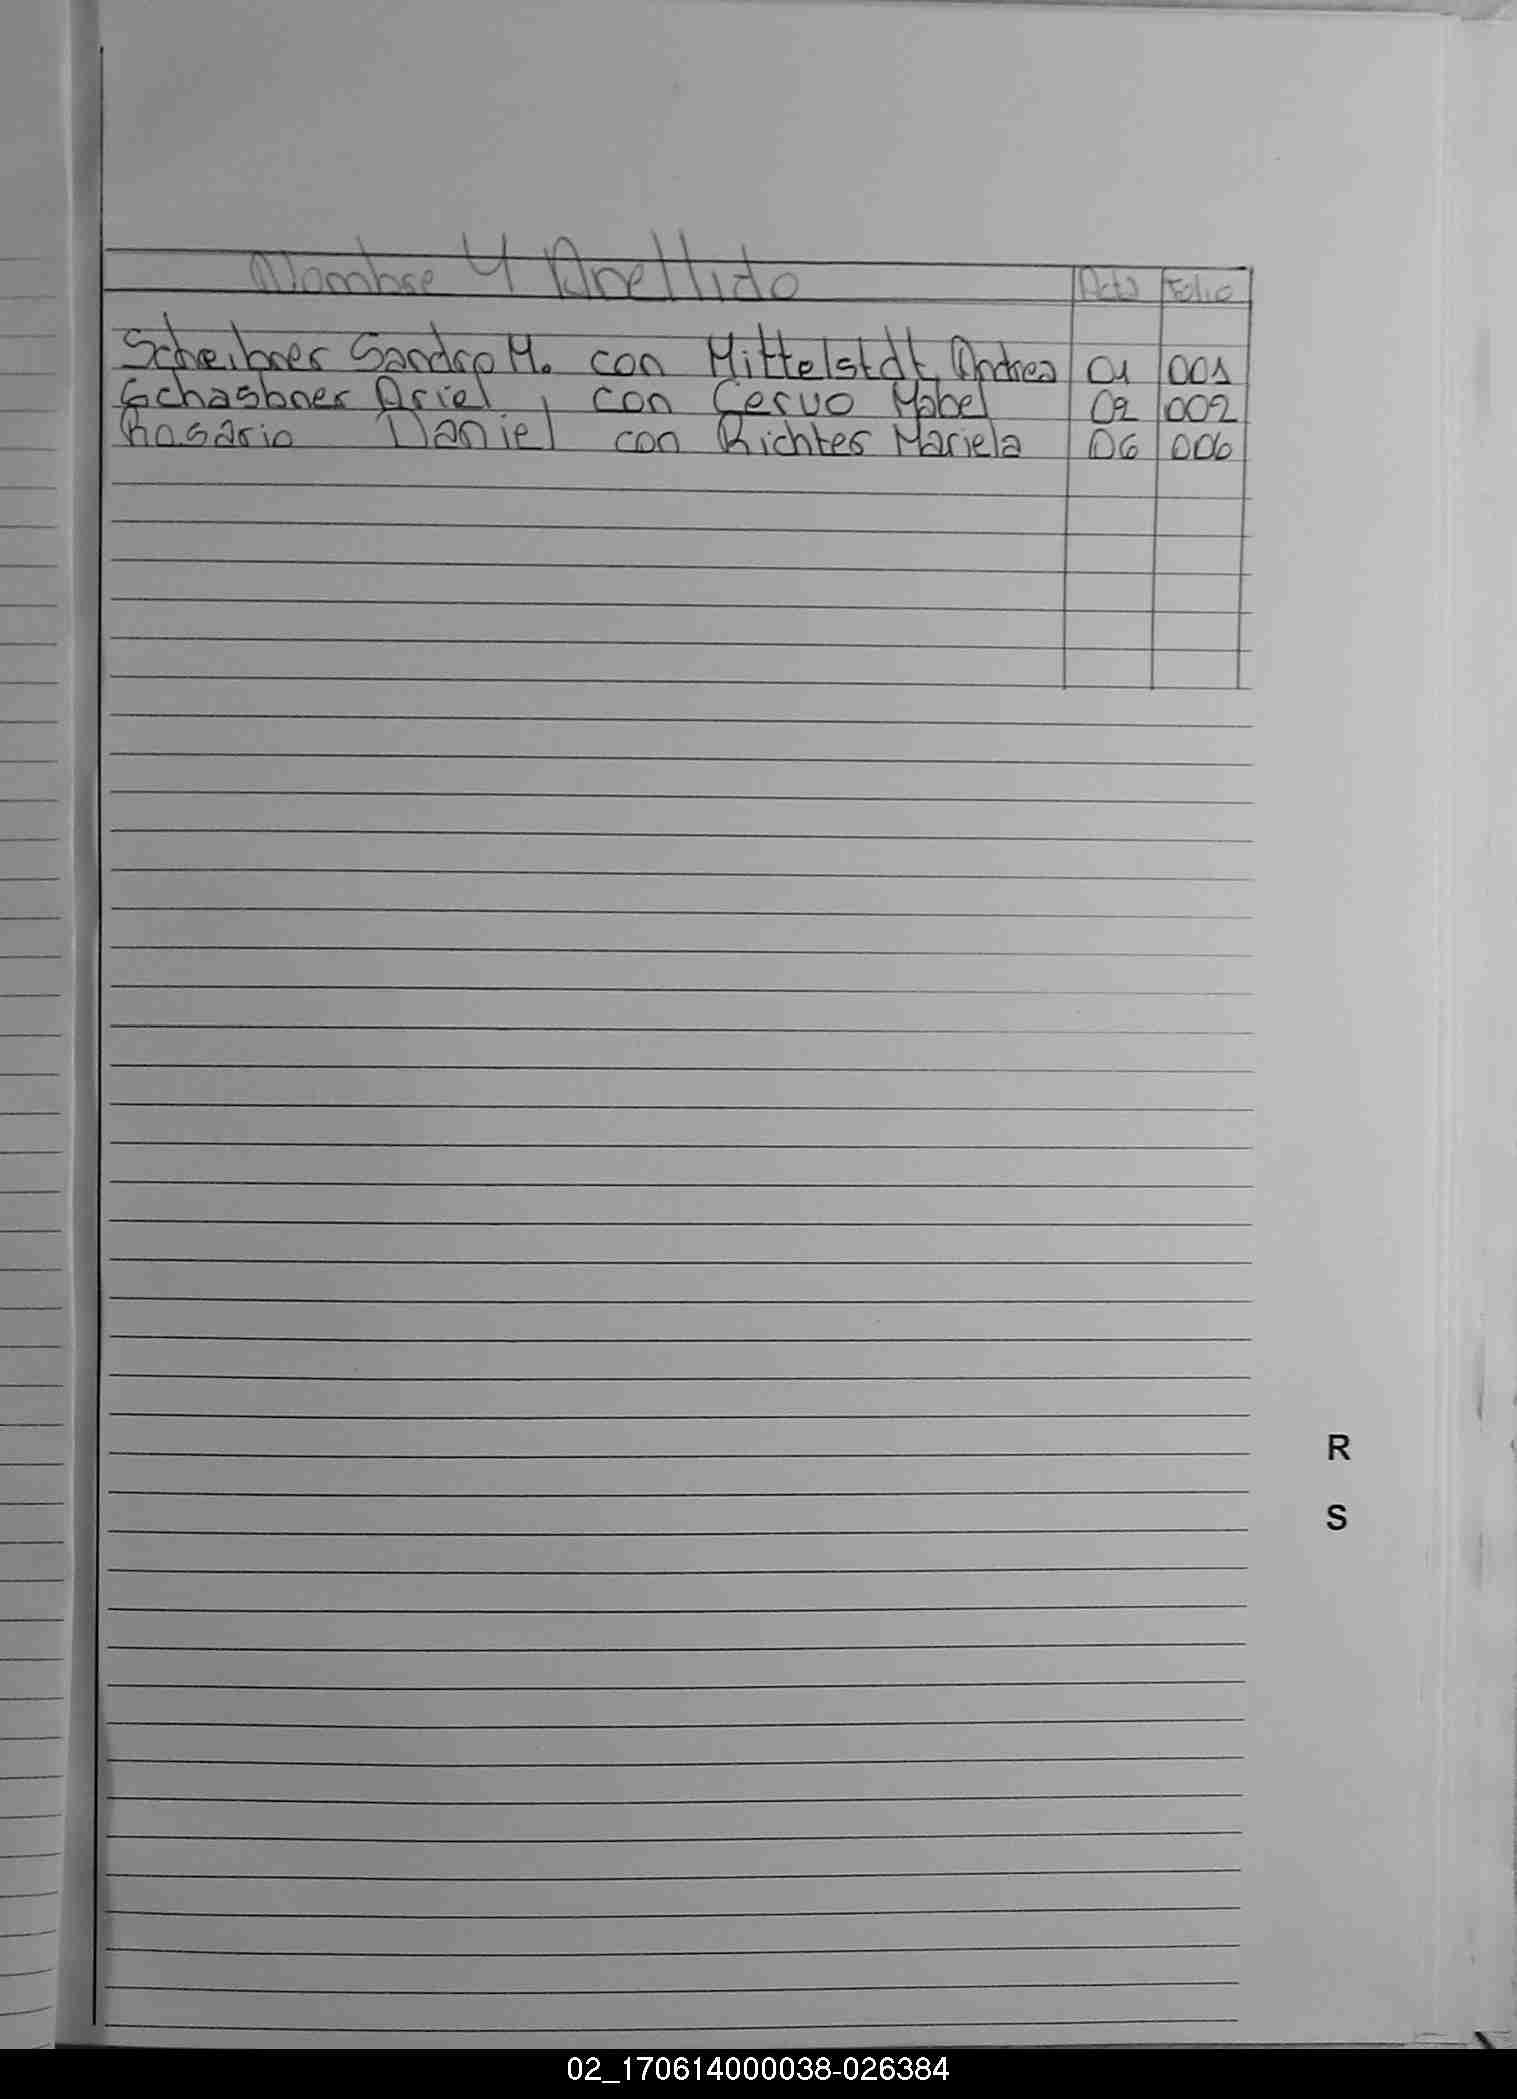 Nombre Y Apellido Acta Folio
Scheibner Sandro M. con Mittelstdt Andrea 01 001
Schasbner Ariel, con Cervo Mabel 02 002
Rosario Daniel con Richter Mariela 06 006
R
S
02_170614000038-026384